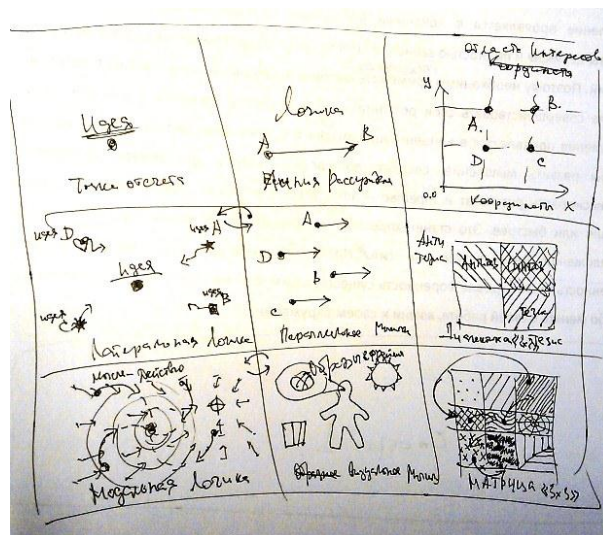 Идея
Точка отсчета
Логика
A B
Линия рассуждения
Область Интересов
Координата
y
A. B.
D C
0.0 Координаты X
идея D
идея A
идея
идея C
идея B
Латеральная Логика
A
D
B
C
Параллельное Мышл
Анти
тезис
Анализ Синтез
Тезис
Тезис
мысле-действо
Модальная Логика
Образ
Визуальное Мышл
МАТРИЦА «3x3»